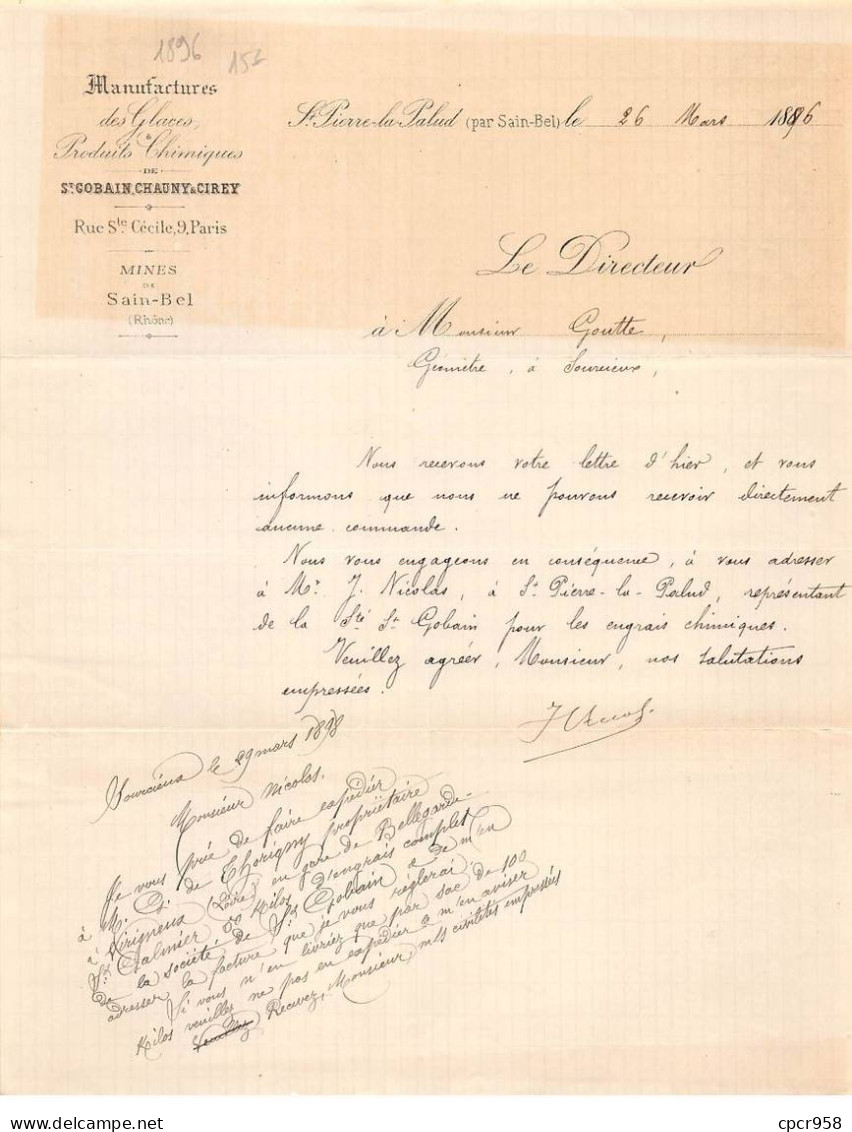 1896 15f
Manufactures
des Glaces,
&
Produits Chimiques
DE
St GOBAIN, CHAUNY & CIREY
Rue Ste Cécile, 9, Paris
MINES
DE
Sain-Bel
(Rhône)
St Pierre-la-Palud (par Sain-Bel) le 26 Mars 1896
Le Directeur
à Monsieur Goutte,
Géomètre, à Sourcieux,
Nous recevons votre lettre d'hier, et vous
informons que nous ne pouvons recevoir directement
aucune commande.
Nous vous engageons en conséquence, à vous adresser
à Mr. J. Nicolas, à St Pierre-la-Palud, représentant
de la Sté St Gobain pour les engrais chimiques.
Veuillez agréer, Monsieur, nos salutations
empressées.
Sourcieux le 29 mars 1898
Monsieur Nicolas.
Je vous prie de faire expédier
à M. G. de Thorigny propriétaire
à Virigneux (Loire) en gare de Bellegarde-
St Galmier 50 Kilos d'engrais complet
de la société de St Gobain & de m'en
adresser la facture que je vous réglerai.
Si vous n'en livriez que par sac de 100
Kilos veuillez ne pas en expédier & m'en aviser
Recevez, Monsieur, mes civilités empressées
cpcr958